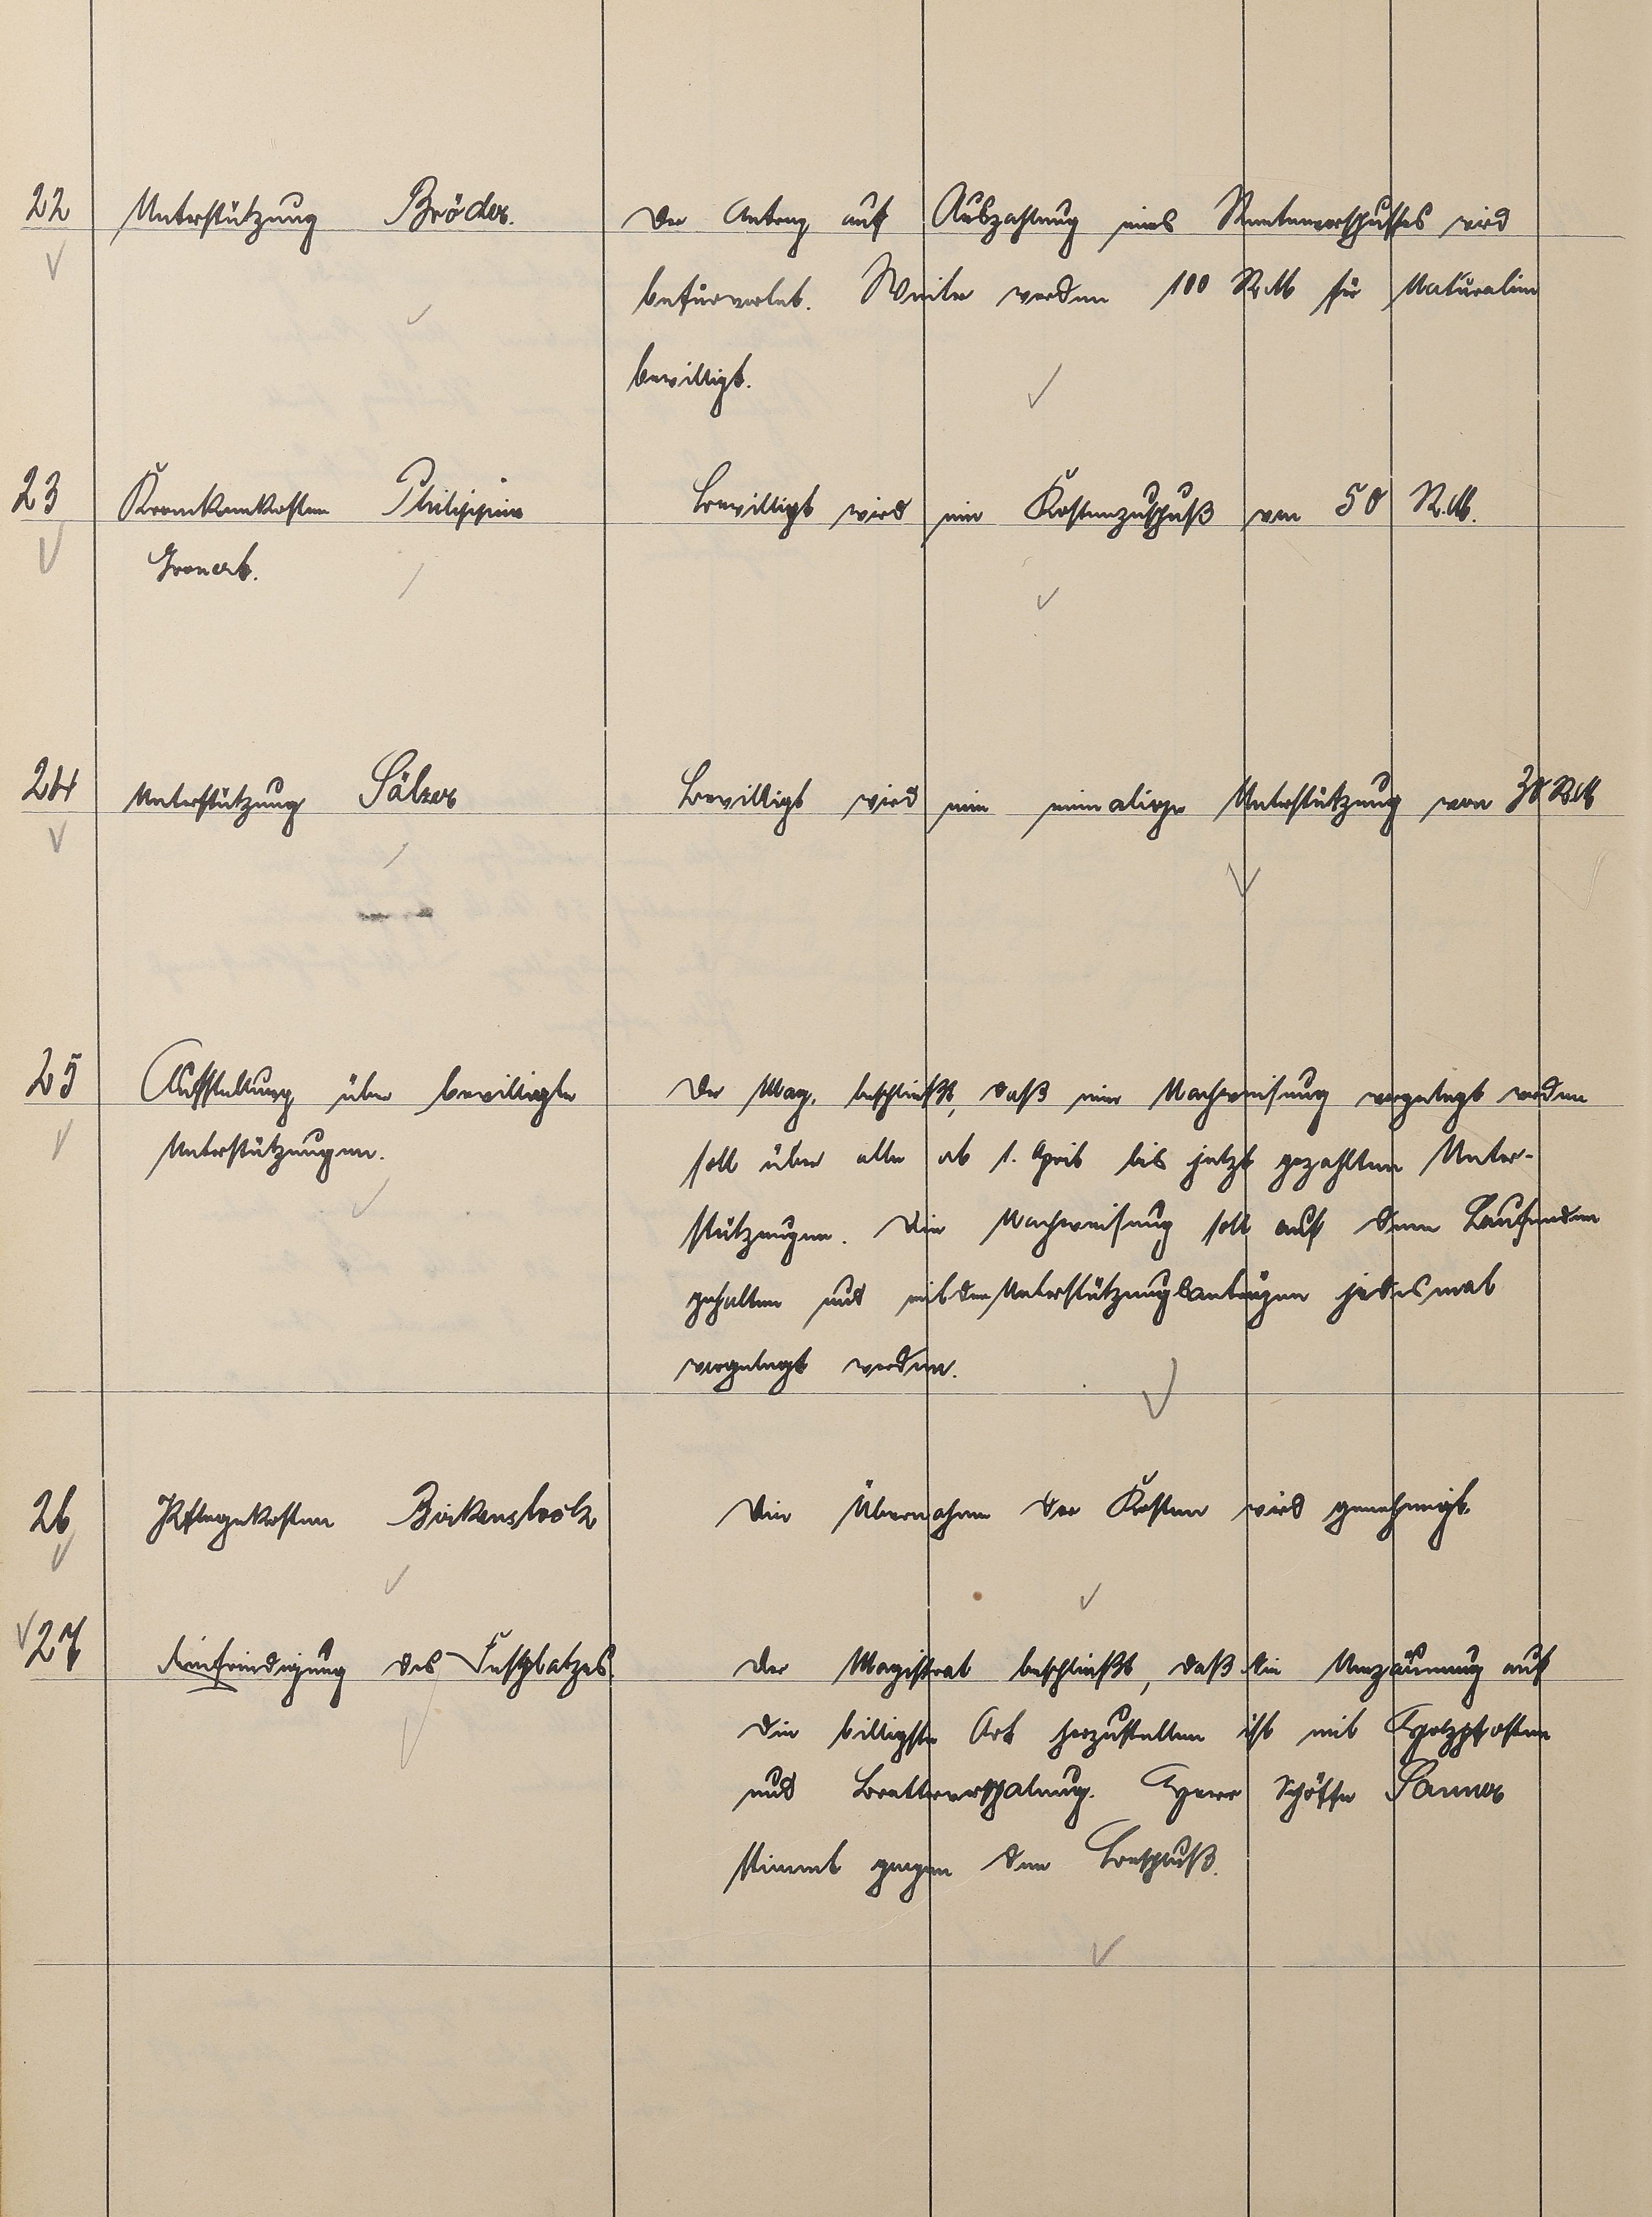 22 Unterstützung Bröder. Der Antrag auf Auszahlung eines Rentenvorschusses wird
befürwortet. Weiter werden 100 RM für Naturalien
bewilligt.
23 Krankenkosten Philippine Bewilligt wird ein Kostenzuschuß von 50 R.M.
Gronert.
24 Unterstützung Sälzer Bewilligt wird eine einmalige Unterstützung von 30 RM
25 Aufstellung über bewilligte Der Mag. beschließt, daß eine Nachweisung vorgelegt werden
Unterstützungen. soll über alle ab 1. April bis jetzt gezahlten Unter-
stützungen. Die Nachweisung soll auf dem Laufenden
gehalten und mit den Unterstützungsanträgen jedesmal
vorgelegt werden.
26 Pflegekosten Birkenstock Die Übernahme der Kosten wird genehmigt.
27 Einfriedigung des Festplatzes. Der Magistrat beschließt, daß die Umzäunung auf
die billigste Art herzustellen ist mit Holzpfosten
und Bretterverschalung. Herr Schöffe Sanner
stimmt gegen den Beschluß.